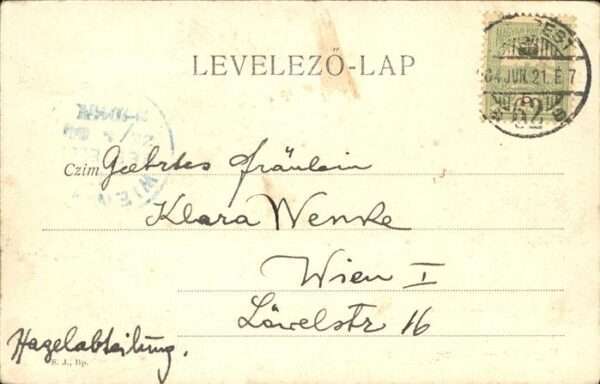 LEVELEZŐ-LAP
PEST
904 JUN. 21. E 7
62
WIEN
Czim Geehrtes Fräulein
Klara Wenke
Wien I
Löwelstr 16
Hagelabteilung.
E. J., Bp.